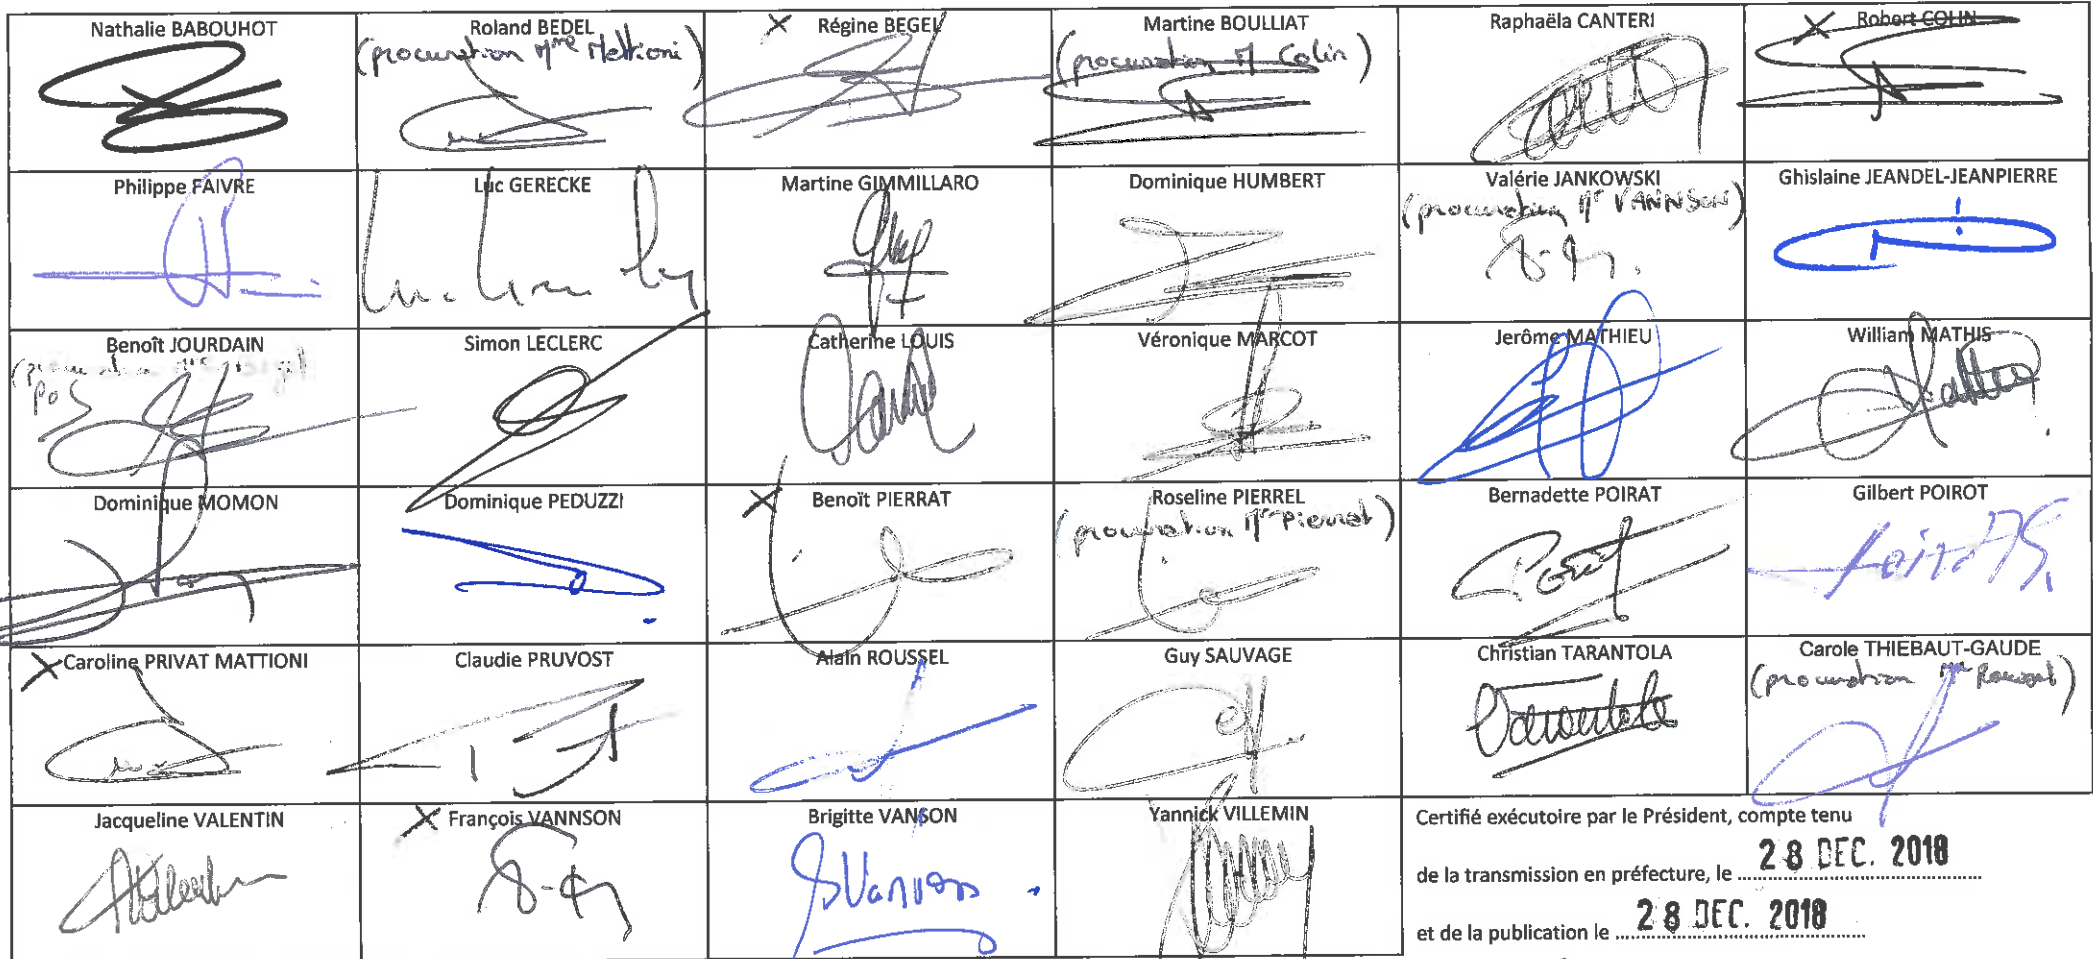 Nathalie BABOUHOT
Roland BEDEL
(procuration Mme Mattioni)
X Régine BEGEL
Martine BOULLIAT
(procuration M Colin)
Raphaëla CANTERI
X Robert COLIN
Philippe FAIVRE
Luc GERECKE
Martine GIMMILLARO
Dominique HUMBERT
Valérie JANKOWSKI
(procuration Mr VANNSON)
Ghislaine JEANDEL-JEANPIERRE
Benoît JOURDAIN
Simon LECLERC
Catherine LOUIS
Véronique MARCOT
Jerôme MATHIEU
William MATHIS
Dominique MOMON
Dominique PEDUZZI
X Benoît PIERRAT
Roseline PIERREL
(procuration Mr Pierrat)
Bernadette POIRAT
Gilbert POIROT
X Caroline PRIVAT MATTIONI
Claudie PRUVOST
Alain ROUSSEL
Guy SAUVAGE
Christian TARANTOLA
Carole THIEBAUT-GAUDE
(procuration Mr Roussel)
Jacqueline VALENTIN
X François VANNSON
Brigitte VANSON
Yannick VILLEMIN
Certifié exécutoire par le Président, compte tenu
de la transmission en préfecture, le 28 DEC. 2018
et de la publication le 28 DEC. 2018